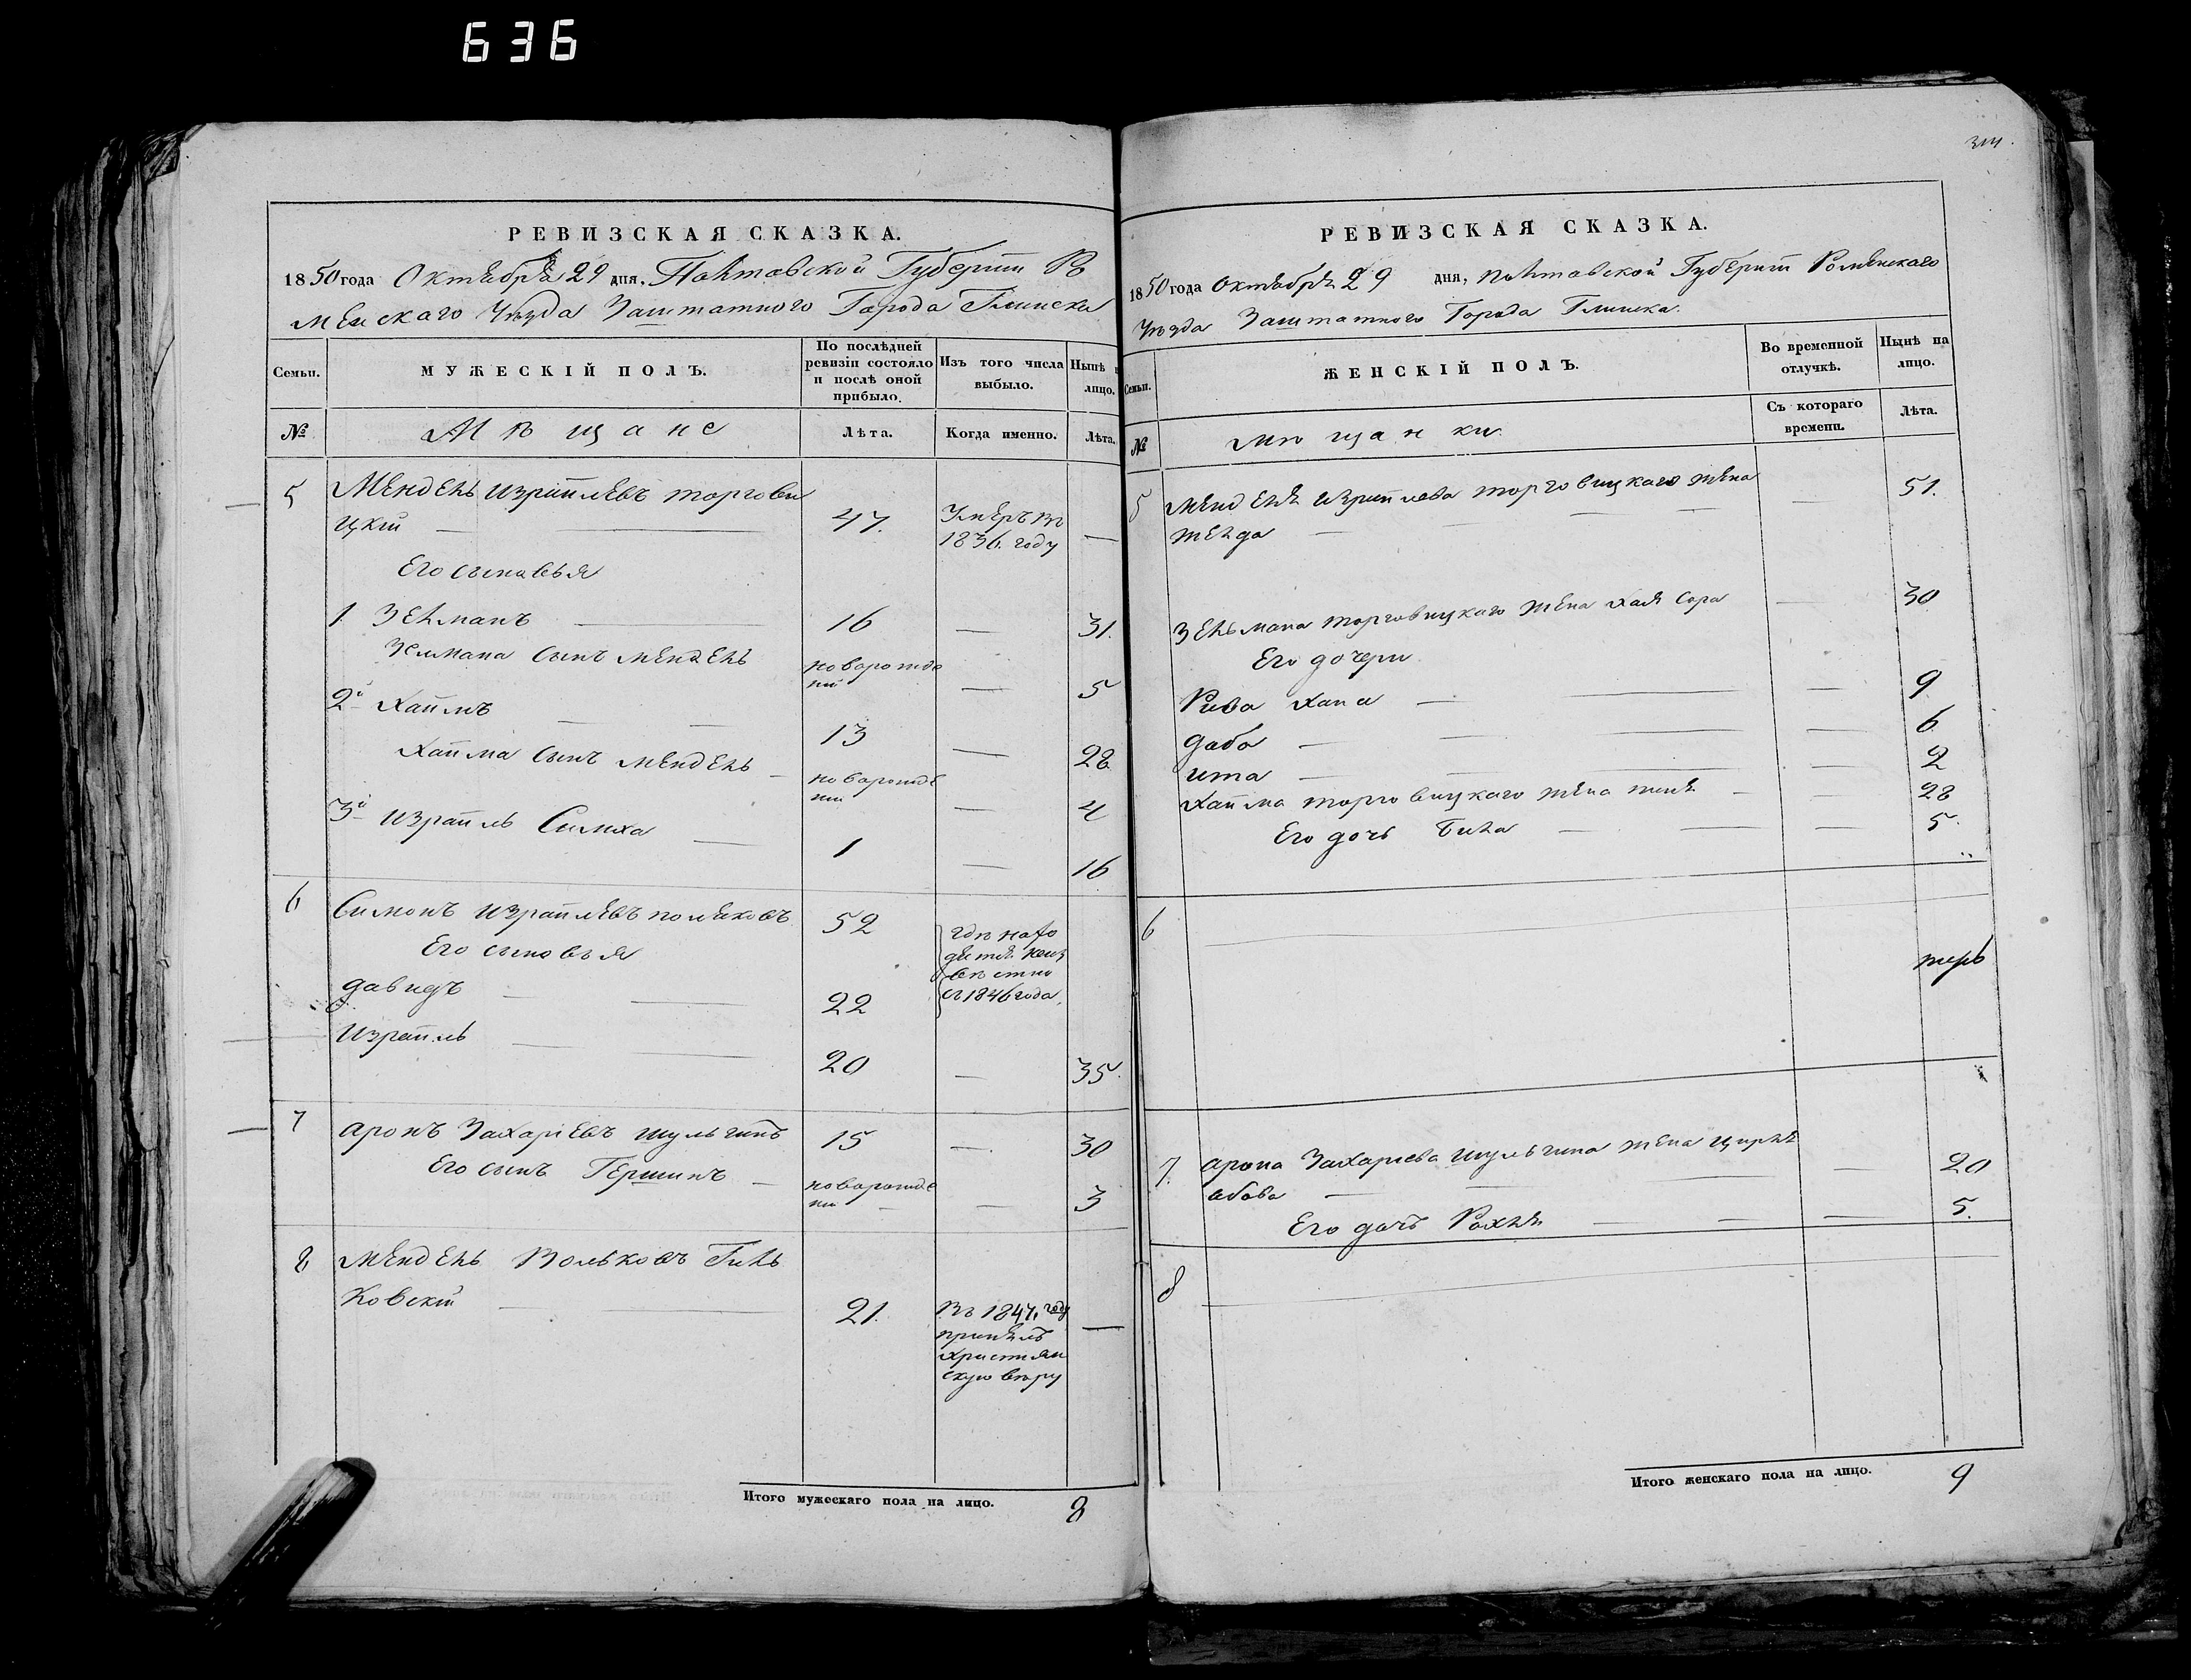 636
РЕВИЗСКАЯ СКАЗКА.
1850 года Октября 29 дня, Полтавской Губернии Ро
менскаго Уезда Заштатного Города Глинска
Семьи.
МУЖЕСКІЙ ПОЛЪ.
По послѣдней ревизіи состояло и послѣ оной прибыло.
Изъ того числа выбыло.
Нынѣ н лицо.
№
Мѣщане
Лѣта.
Когда именно.
Лѣта.
5 Мендель Израилевъ Торгови
цкій 47. Умеръ въ
1836. году —
Его сыновья
1. Зельманъ 16 — 31.
Зелмана сынъ Мендель новорожде
ни — 5
2й Хаимъ 13 — 28
Хаима сынъ Мендель новорожде
ни — 4
3й Израиль Симха 1 — 16
6 Симонъ Израилевъ Поляковъ 52
Его сыновья
Давидъ 22
где нахо
дятся неиз
вестно
съ 1846 года
Израиль 20 — 35.
7 Аронъ Захаріевъ Шульгинъ 15 — 30
Его сынъ Гершинъ новорожде
ни — 3
8 Мендель Вольковъ Гиль
ковскій 21. Въ 1847. году
принялъ
християн
скую веру —
Итого мужескаго пола на лицо. 8
РЕВИЗСКАЯ СКАЗКА.
1850 года Октября 29 дня, Полтавской Губернии Роменскаго
Уезда Заштатного Города Глинска.
Семьи.
ЖЕНСКІЙ ПОЛЪ.
Во временной отлучкѣ.
Нынѣ на лицо.
№
Мѣщанки
Съ котораго времени.
Лѣта.
5 Менделя Израилева Торговицкаго жена — 51.
Зельмана Торговицкаго жена Хая Сора — 30
Его дочери
Рива Хана — 9
Даба — 6
Ита — 2
Хаима Торговицкаго жена — 28
Его дочь Била — 5.
6
7. Арона Захариева Шульгина жена
— 20
Его дочъ Рахля — 5.
8
Итого женскаго пола на лицо. 9